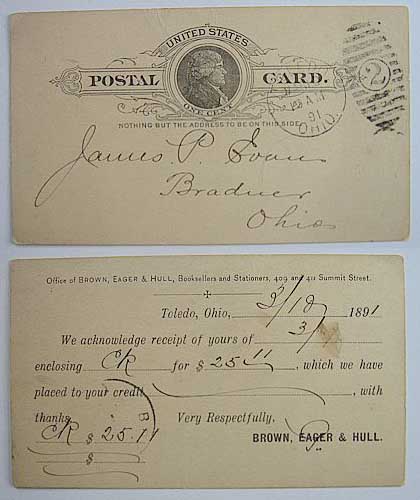 UNITED STATES
POSTAL CARD.
ONE CENT
NOTHING BUT THE ADDRESS TO BE ON THIS SIDE
91
OHIO.
2
James P. Evans
Bradner
Ohio
Office of BROWN, EAGER & HULL, Booksellers and Stationers, 409 and 411 Summit Street.
Toledo, Ohio, 3/18 1891
We acknowledge receipt of yours of 3/
enclosing CK for $ 25 11, which we have
placed to your credit, with
thanks. Very Respectfully,
CK $ 25.11 BROWN, EAGER & HULL.
$
B